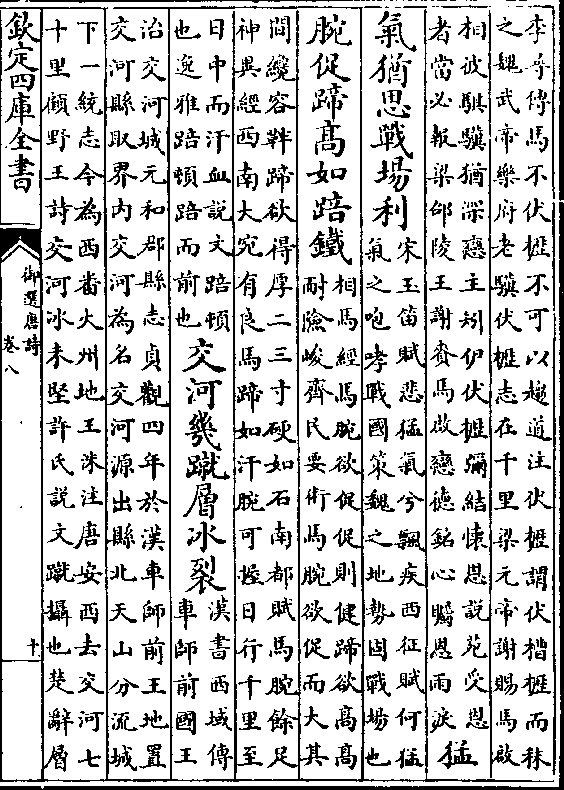 李尋傳馬不伏櫪不可以趨道注伏櫪謂伏槽櫪而秣
之魏武帝樂府老驥伏櫪志在千里梁元帝謝賜馬啟
相彼騏驥猶深戀主矧伊伏櫪彌結懷恩説苑受恩
者當必報梁邵陵王謝賚馬啟戀德銘心矚恩雨淚
猛
氣猶思戰場利
宋玉笛賦悲猛氣兮飄疾西征賦何猛
氣之咆哮戰國策魏之地勢固戰場也
腕促蹄高如踣鐵
相馬經馬腕欲促促則健蹄欲高高
耐險峻齊民要術馬腕欲促而大其
間纔容靽蹄欲得厚二三寸硬如石南都賦馬腕餘足
神異經西南大宛有良馬蹄如汗腕可握日行千里至
日中而汗血説文踣頓
也爰雅踣頓踣而前也
交河幾蹴層冰裂
漢書西域傳
車師前國王
治交河城元和郡縣志貞觀四年於漢車師前王地置
交河縣取界内交河為名交河源出縣北天山分流城
下一統志今為西番火州地王洙注唐安西去交河七
十里顧野王詩交河冰未堅許氏説文蹴攝也楚辭層
欽定四庫全書
御選唐詩
卷八
十